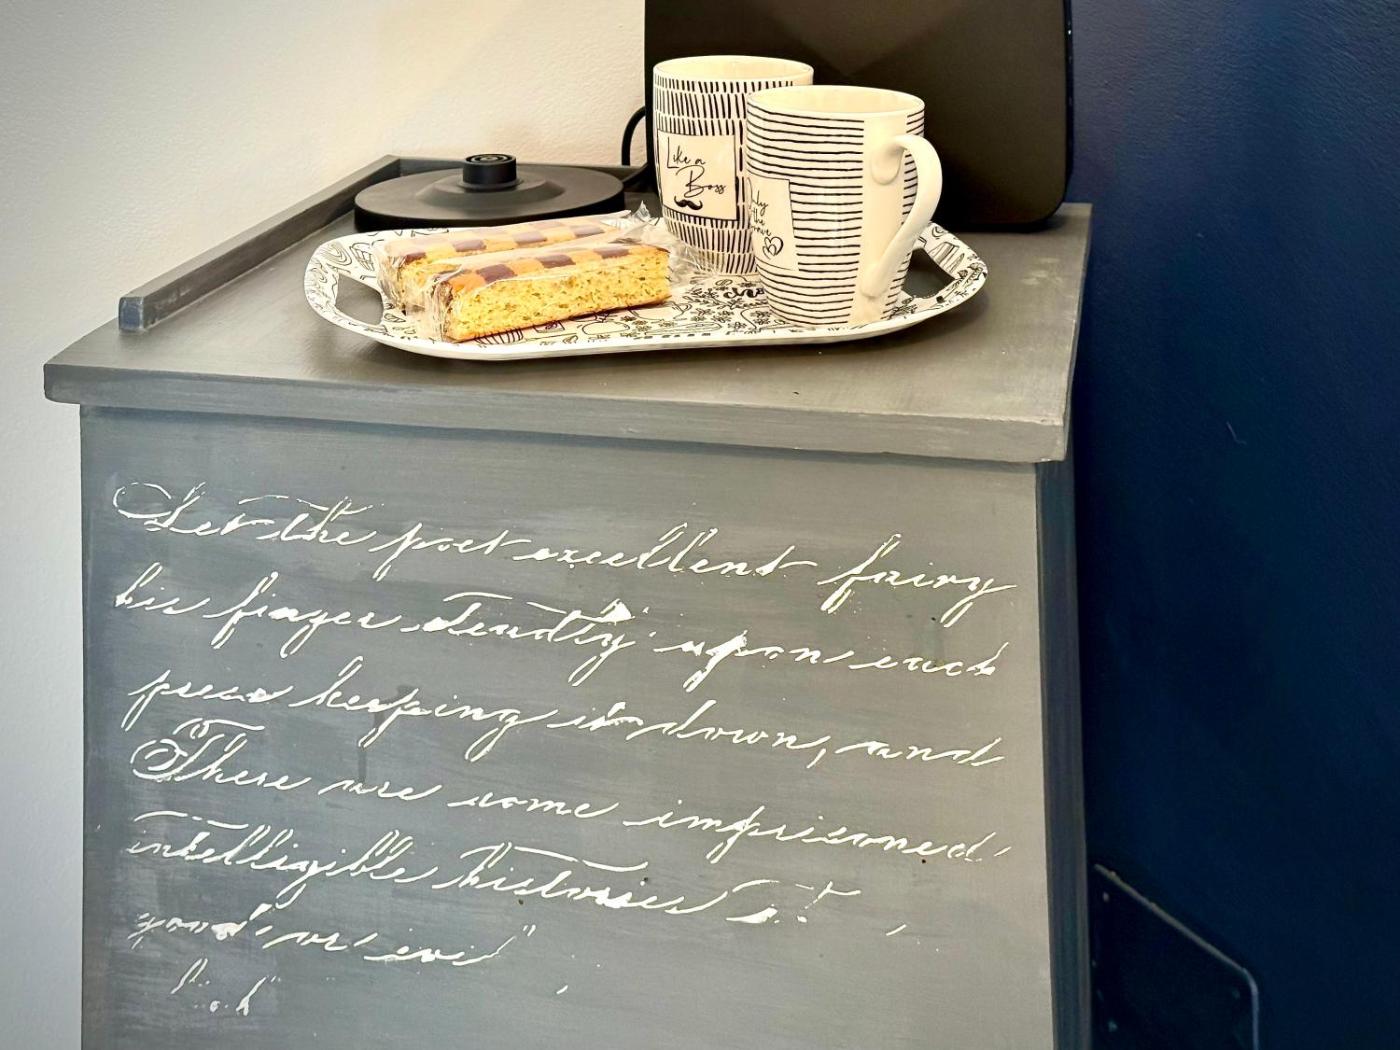 Like a
Boss
Only
the
Brave
Let the poet excellent fairy
his finger steadily upon each
press keeping it down, and
There are some imprisoned
intelligible histories
good or evil"